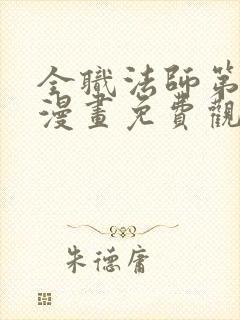 全職法師第
漫畫免費觀
朱德庸